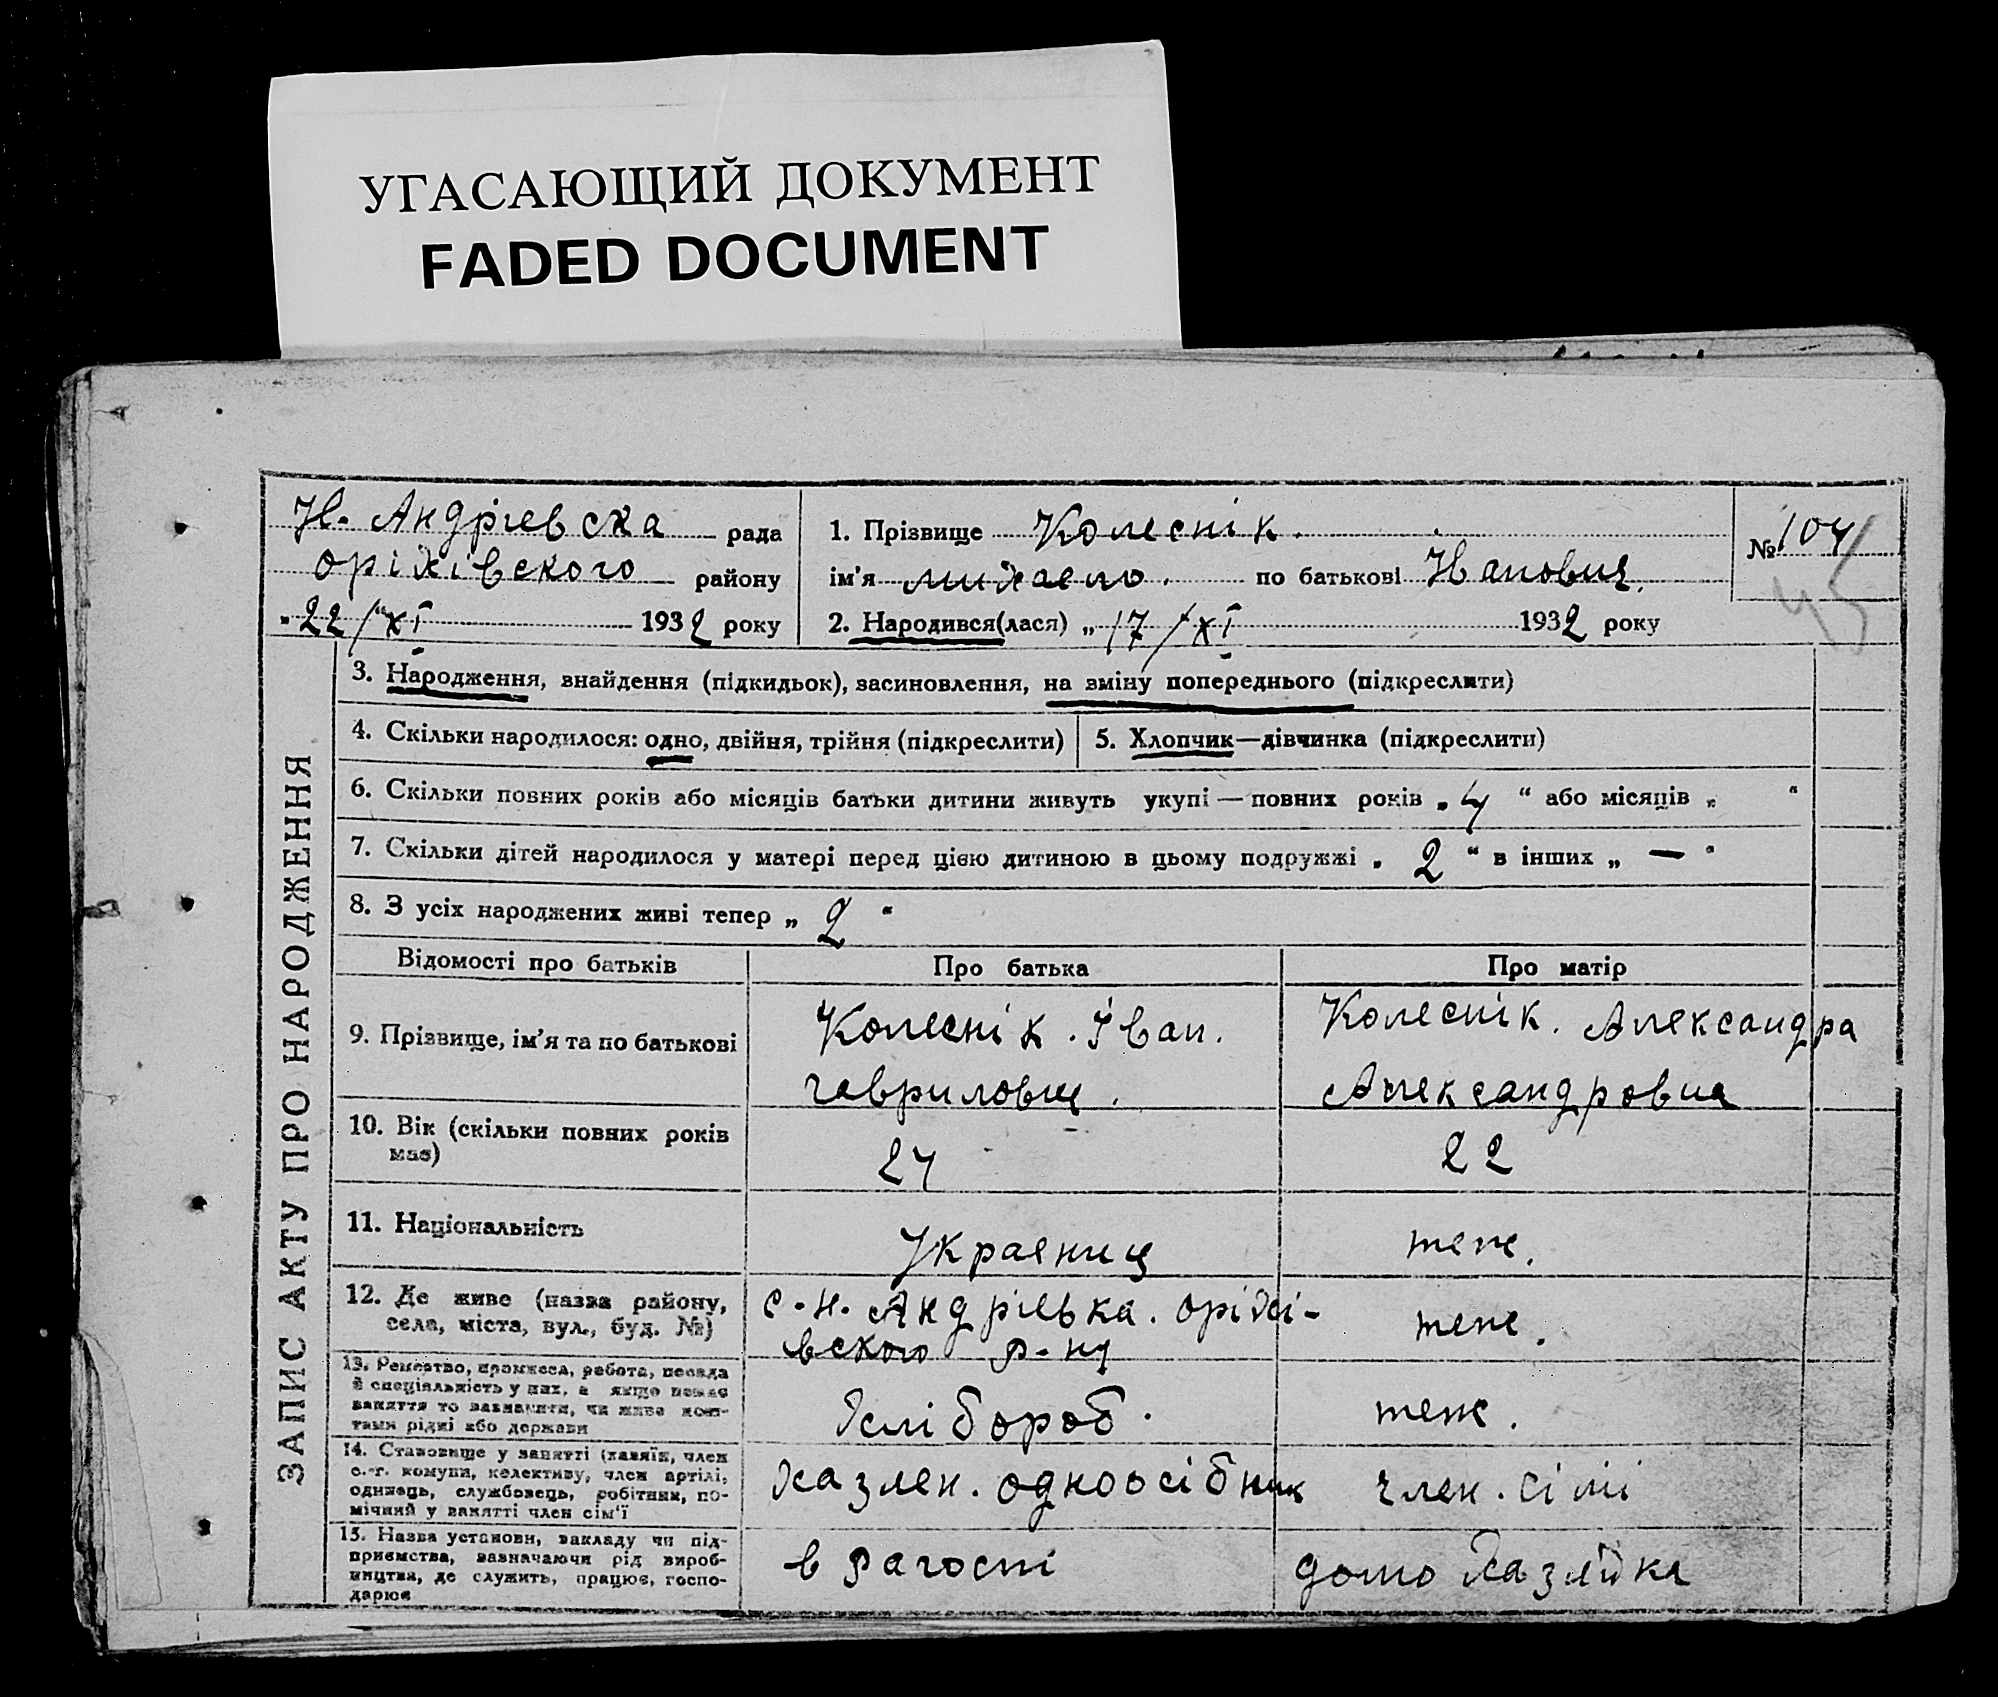 УГАСАЮЩИЙ ДОКУМЕНТ
FADED DOCUMENT
Н. Андрієвска рада
оріхівского району
"22/XI 1932 року
1. Прізвище Колеснік.
ім'я михаело. по батькові Иванович.
2. Народився(лася) „17/XI 1932 року
№ 104
45
ЗАПИС АКТУ ПРО НАРОДЖЕННЯ
3. Народження, внайдення (підкидьок), засиновлення, на зміну попереднього (підкреслити)
4. Скільки народилося: одно, двійня, трійня (підкреслити)
5. Хлопчик—дівчинка (підкреслити)
6. Скільки повних років або місяців батьки дитини живуть укупі — повних років „4“ або місяців „ “
7. Скільки дітей народилося у матері перед цією дитиною в цьому подружжі „2“ в інших „—“
8. З усіх народжених живі тепер „2“
Відомості про батьків
Про батька
Про матір
9. Прізвище, ім'я та по батькові
Колеснік. Іван.
гаврилович.
Колеснік. Александра
Александровна
10. Вік (скільки повних років
має)
24
22
11. Національність
Украениц
теж.
12. Де живе (назва району,
села, міста, вул., буд. №)
с. н. Андрієвка. оріхі-
вского р-ну
теж.
13. Ремество, промисел, робота, посада
й спеціальність у них, а якщо немає
заняття то зазначити, чи живе кош-
тами рідні або держави
хлібороб.
теж.
14. Становище у занятті (хазяїн, член
с.-г. комуни, колективу, член артілі,
одинець, службовець, робітник, по-
мічний у занятті член сім'ї
одноосібник
член. сімі
15. Назва установи, закладу чи під-
приємства, зазначаючи рід вироб-
ництва, де служить, працює, госпо-
дарює
домо хазяйка